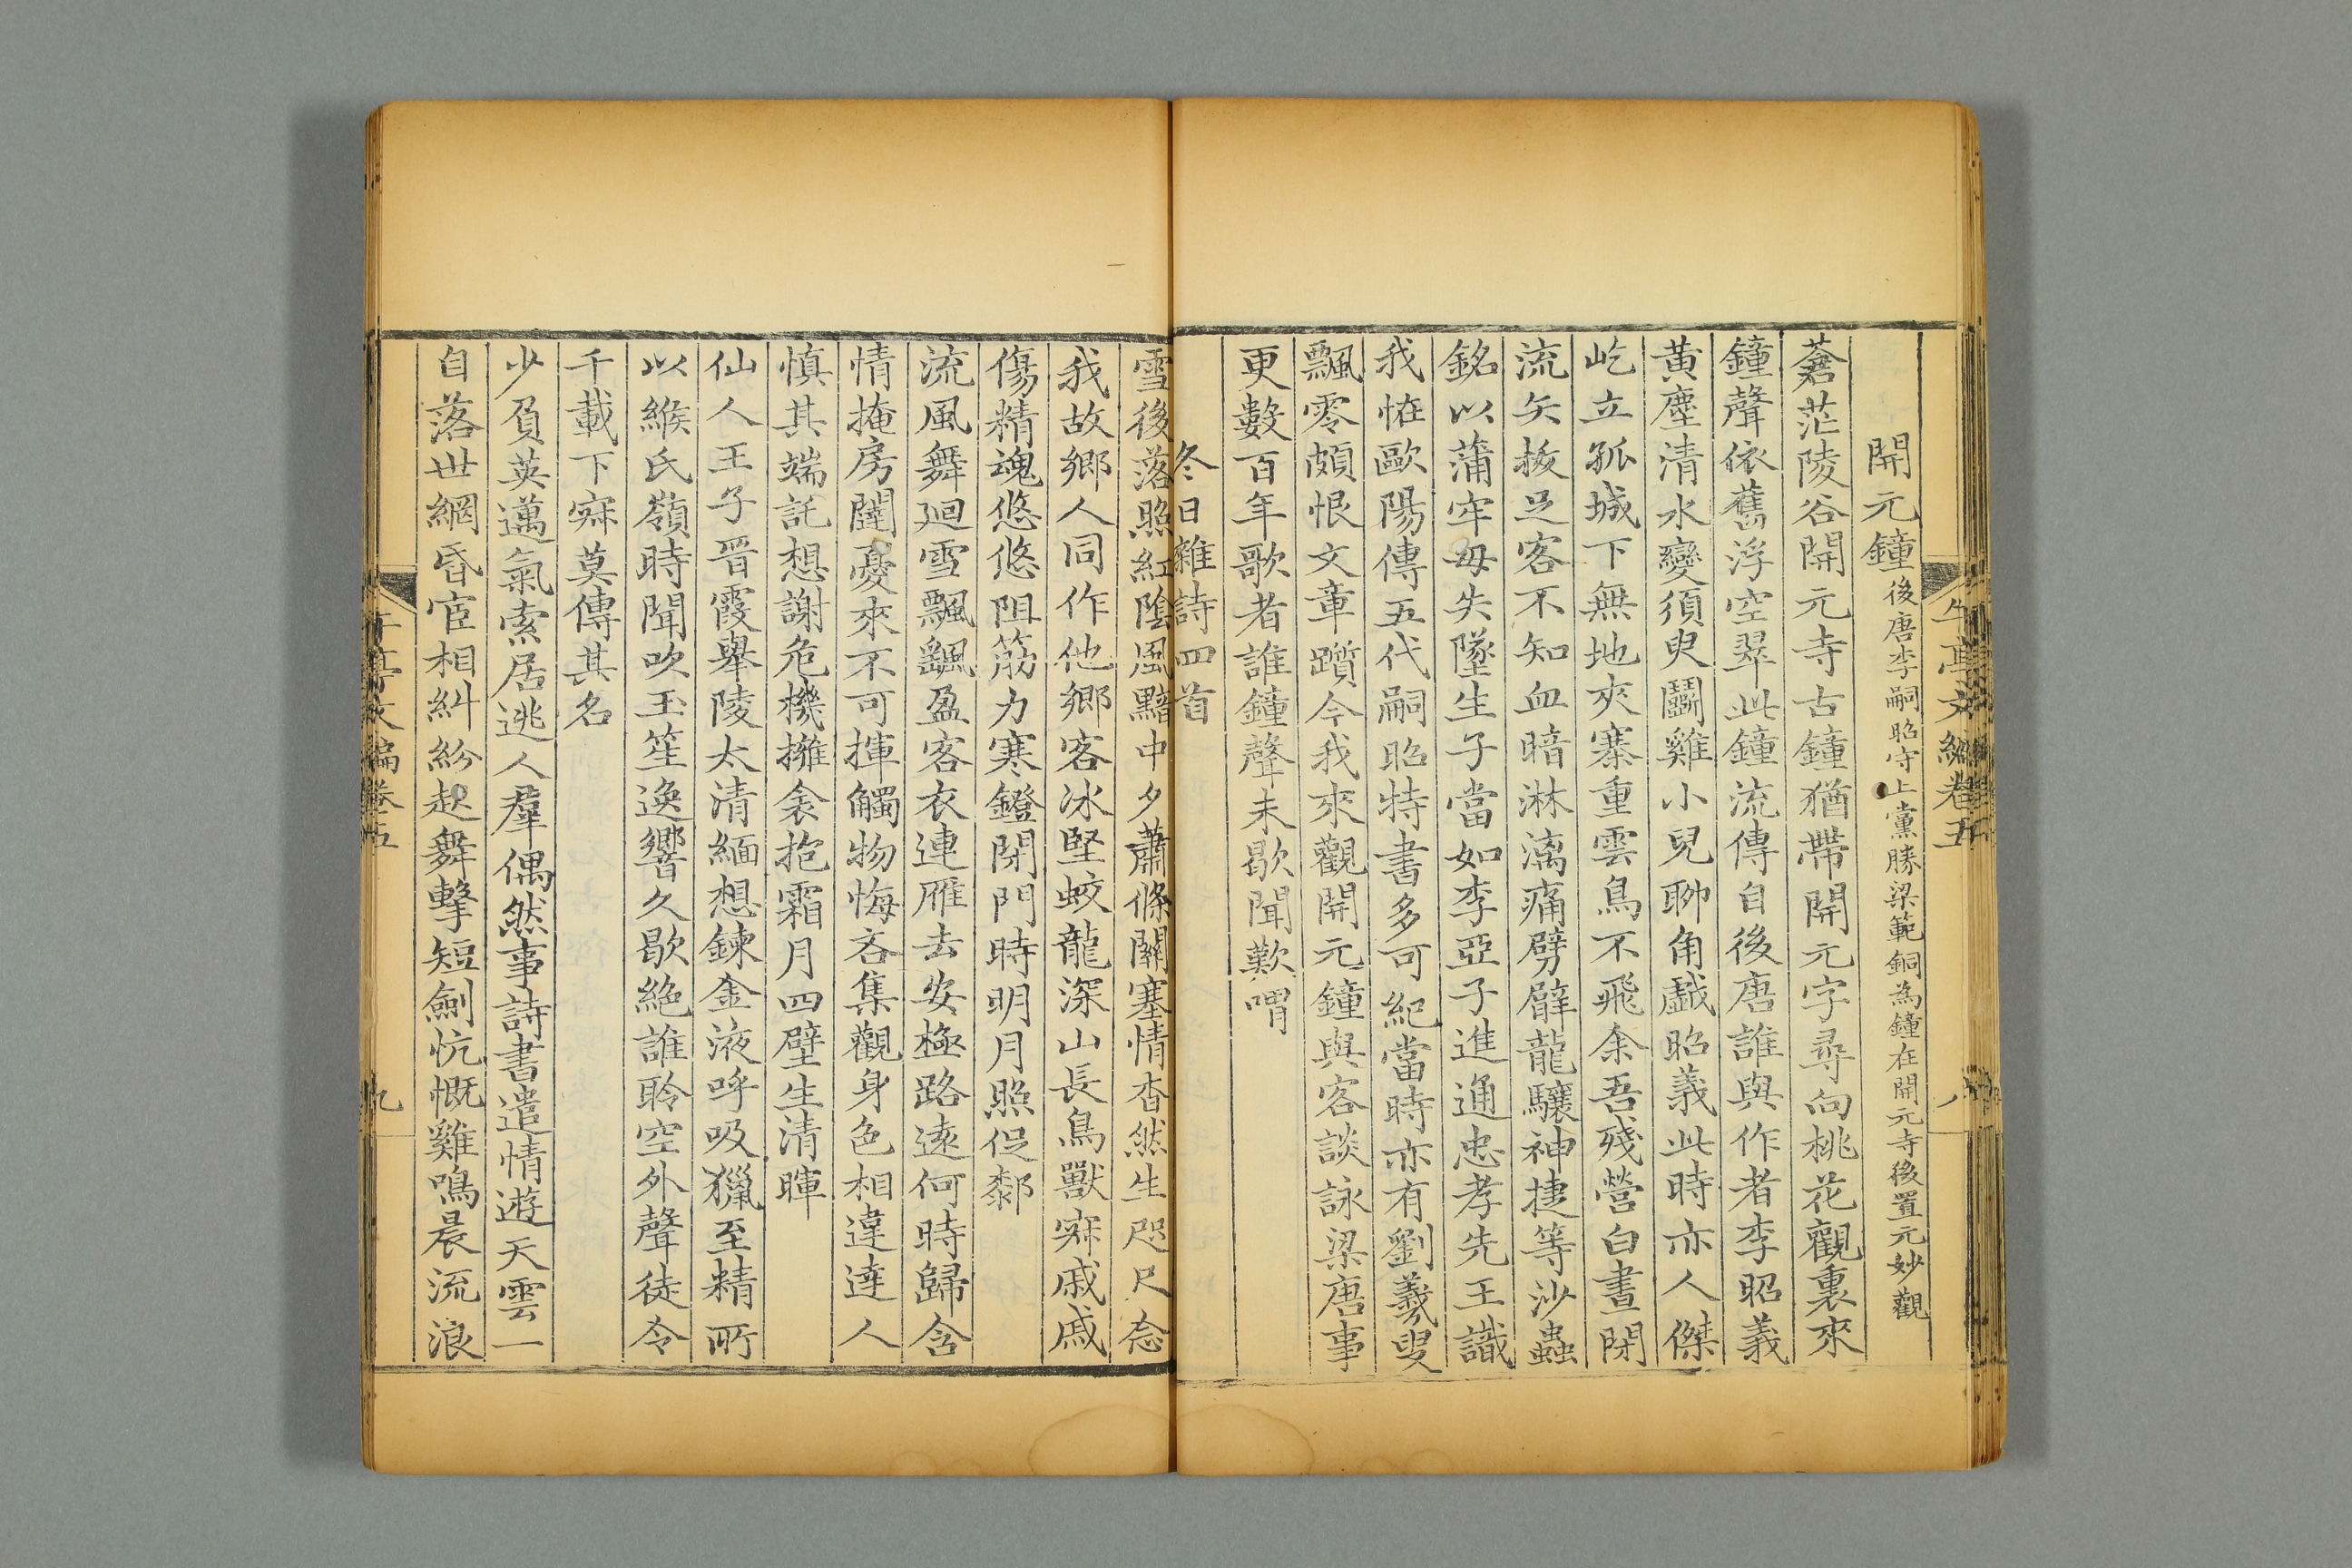 午亭文編卷五
八
開元鐘後唐李嗣昭守上黨勝梁範銅為鐘在開元寺後置元妙觀
蒼茫陵谷開元寺古鐘猶帶開元字尋向桃花觀裏來
鐘聲依舊浮空翠此鐘流傳自後唐誰與作者李昭義
黃塵清水變須臾鬬雞小兒聊角戲昭義此時亦人傑
屹立孤城下無地夾寨重雲鳥不飛余吾殘營白晝閉
流矢拔足客不知血暗淋漓痛劈臂龍驤神捷等沙蟲
銘以蒲牢毋失墜生子當如李亞子進通忠孝先王識
我恠歐陽傳五代嗣昭特書多可紀當時亦有劉羲叟
飄零頗恨文章躓今我來觀開元鐘與客談詠梁唐事
更數百年歌者誰鐘聲未歇聞歎喟
冬日雜詩四首
雪後落照紅陰風黯中夕蕭條關塞情杳然生咫尺念
我故鄉人同作他鄉客冰堅蛟龍深山長鳥獸寂戚戚
傷精魂悠悠阻筋力寒鐙閉門時明月照促漆
流風舞廻雪飄颻盈客衣連雁去安極路遠何時歸含
情掩房闥憂來不可揮觸物悔吝集觀身色相違達人
慎其端託想謝危機擁衾抱霜月四壁生清暉
仙人王子晉霞舉陵太清緬想鍊金液呼吸獵至精所
以緱氏嶺時聞吹玉笙逸響久歇絕誰聆空外聲徒令
千載下寂莫傳其名
少負英邁氣索居逃人羣偶然事詩書遣情遊天雲一
自落世網昏宦相糾紛起舞擊短劍忼慨雞鳴晨流浪
午亭文編卷五
九